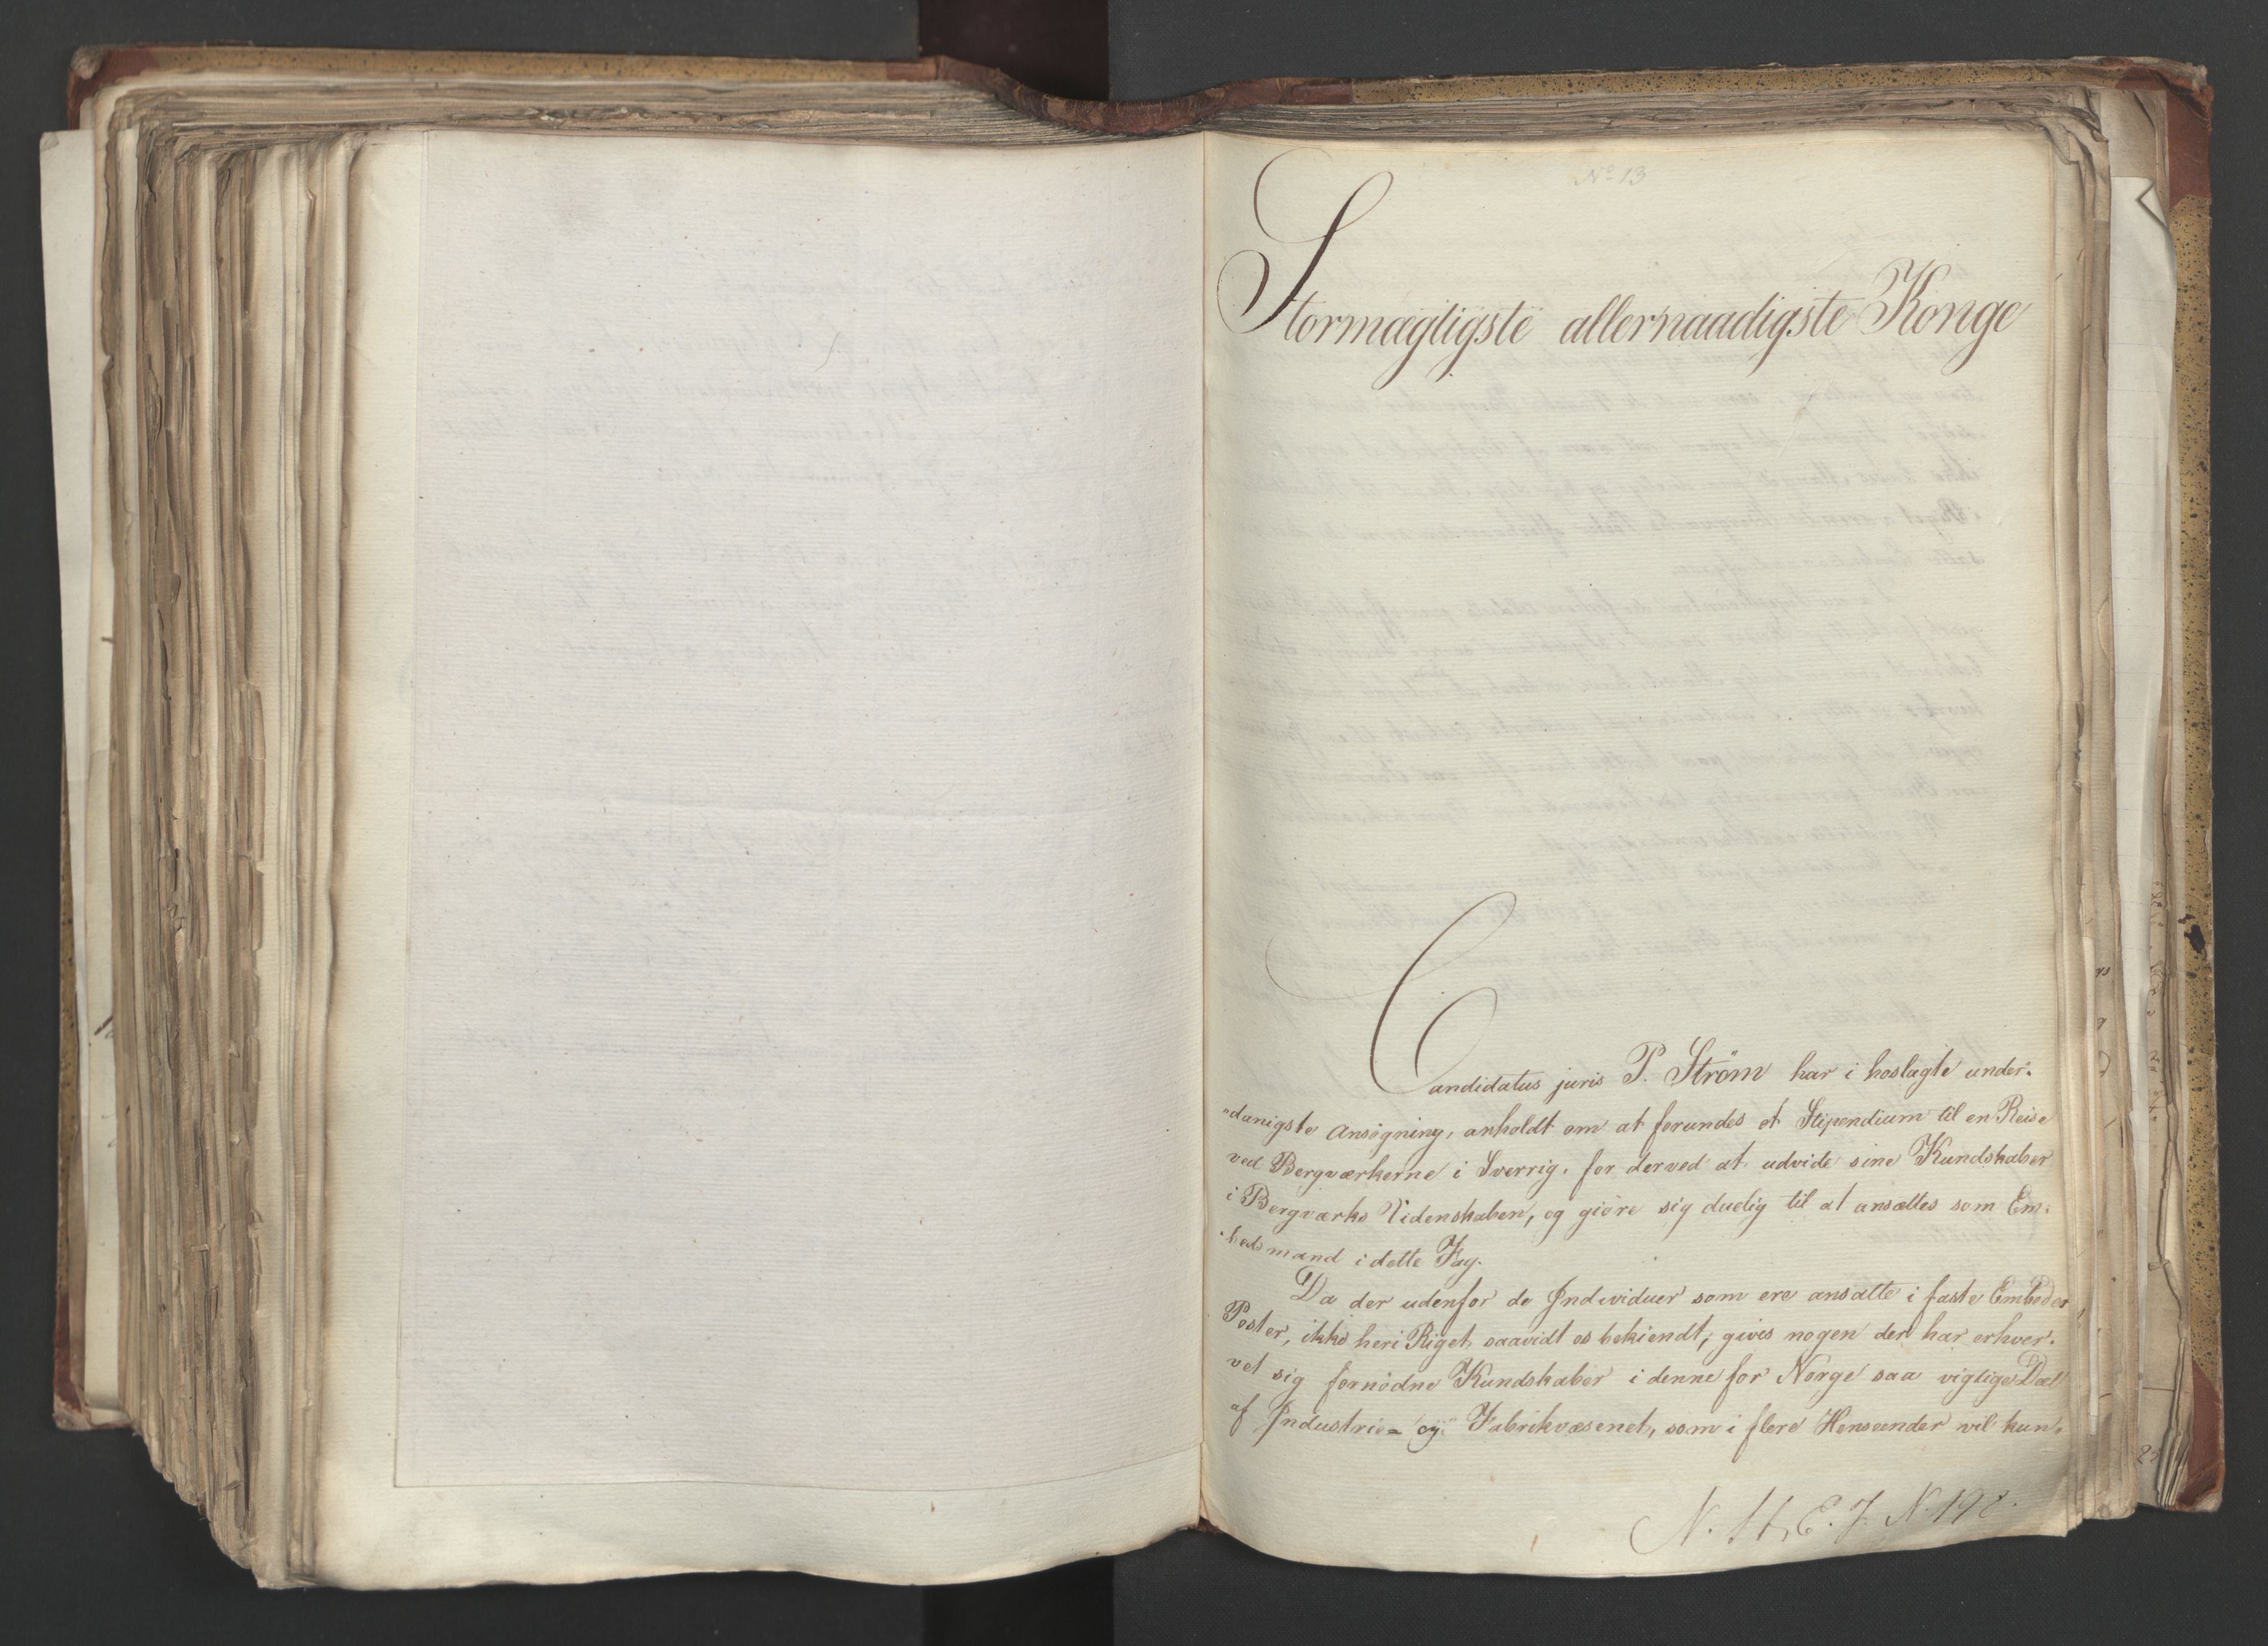 No 13
Stormægtigste allernaadigste Konge
Candidatus juris P. Ström har i hoslagte under-
„danigste Ansögning, anholdt om at forundes et Stipendium til en Reise
ved Bergværkerne i Sverrig, for derved at udvide sine Kundskaber
i Bergværks Videnskaben, og giöre sig duelig til at ansættes som Em-
„bedsmand i dette Fag.
Da der udenfor de Individuer som ere ansatte i faste Embeds
Poster, ikke heri Riget, saavidt os bekiendt, gives nogen der har erhver-
vet sig fornödne Kundskaber i denne for Norge saa vigtige Deel
af Industrie- og Fabrikvæsenet, som i flere Henseender vil kun-